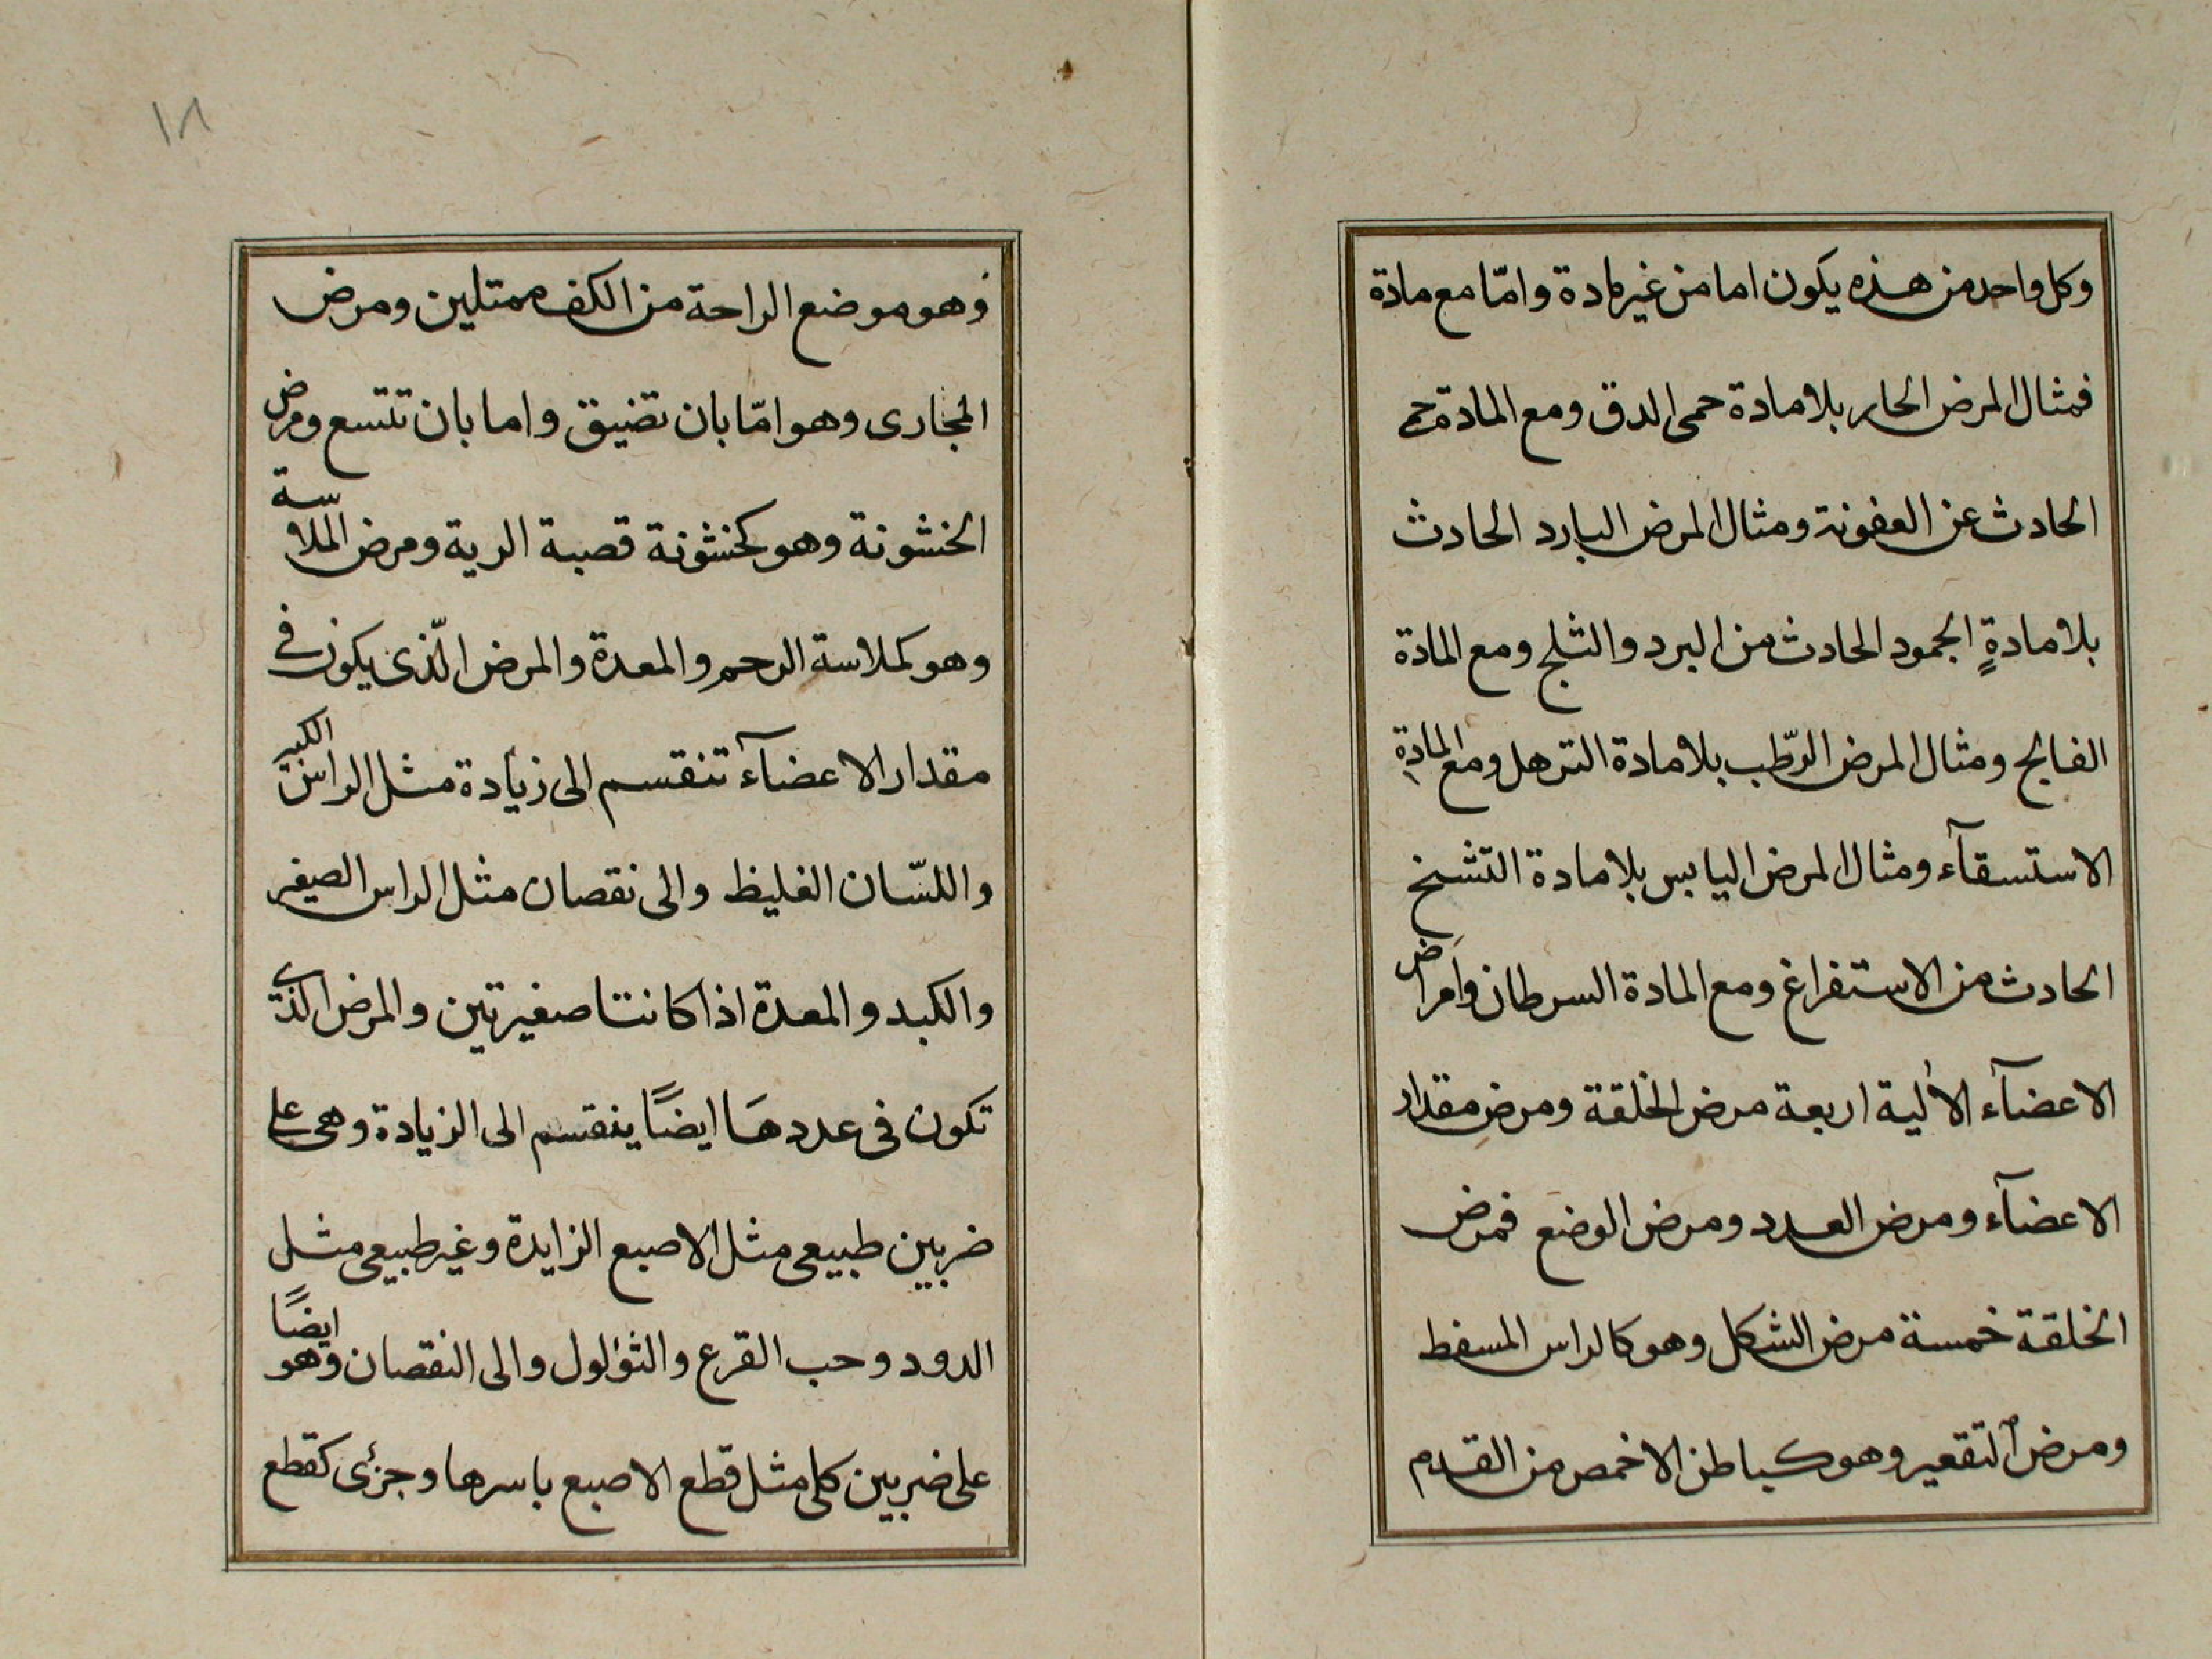 وكل واحد من هذه يكون اما من غير مادة وامّا مع مادة
فمثال المرض الحار بلا مادة حمى الدق ومع المادة حمى
الحادث عن العفونة ومثال المرض البارد الحادث
بلا مادةٍ الجمود الحادث من البرد والثلج ومع المادة
الفالج ومثال المرض الرّطب بلا مادة الترهل ومع المادةِ
الاستسقآء ومثال المرض اليابس بلا مادة التشنج
الحادث من الاستفراغ ومع المادة السرطان وامراض
الاعضآء الألية اربعة مرض الخلقة ومرض مقدار
الاعضآء ومرض العدد ومرض الوضع فمرض
الخلقة خمسة مرض الشكل وهو كالراس المسفط
ومرض التقعير وهو كباطن الاخمص من القدم
١٨
وهو موضع الراحة من الكف ممتلين ومرض
المجارى وهو امّا بان تضيق واما بان تتسع ومرض
الخشونة وهو كخشونة قصبة الرية ومرض الملاسة
وهو كملاسة الرحم والمعدة والمرض الّذى يكون فى
مقدار الاعضآء تنقسم الى زيادة مثل الراس الكبير
واللسّان الغليظ والى نقصان مثل الراس الصغير
والكبد والمعدة اذا كانتا صغيرتين والمرض الذى
تكون فى عددهَا ايضًا ينقسم الى الزيادة وهى على
ضربين طبيعى مثل الاصبع الزايدة وغير طبيعى مثل
الدود وحب القرع والثؤلول والى النقصان وهو ايضًا
على ضربين كلى مثل قطع الاصبع باسرها وجزئى كقطع